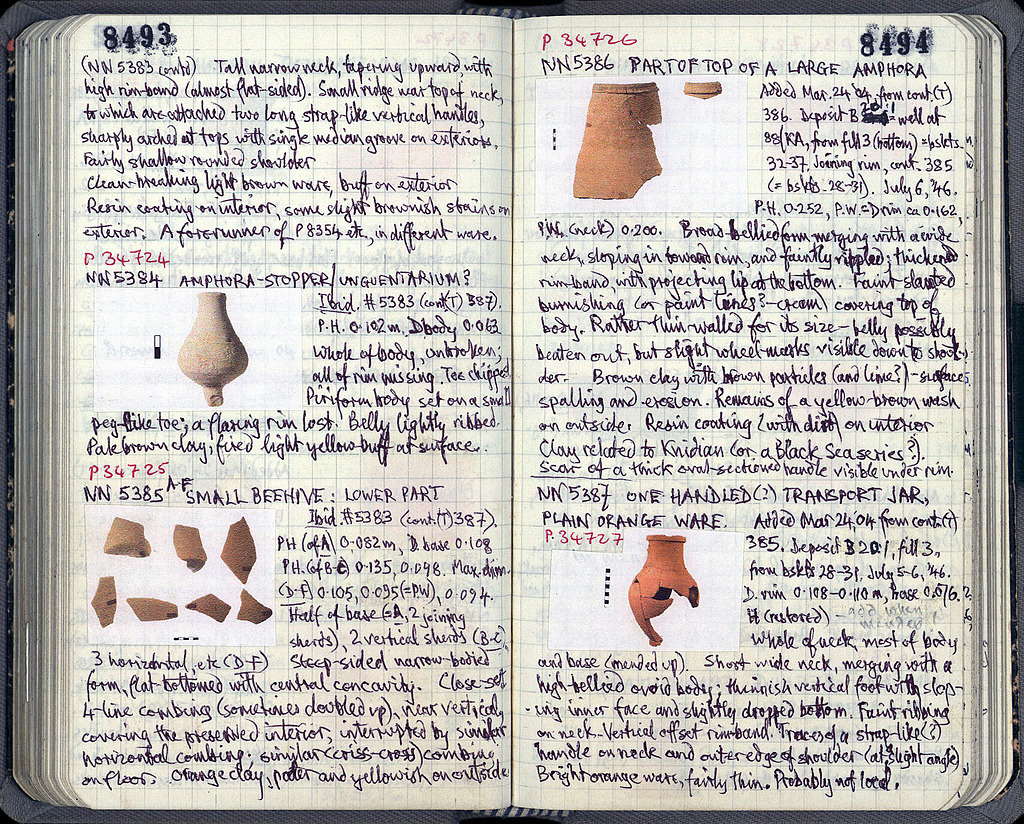 8493
(NN 5383 contd) Tall narrow neck, tapering upward, with
high rim-band (almost flat-sided). Small ridge near top of neck,
to which are attached two long strap-like vertical handles,
sharply arched at tops with single median groove on exteriors.
Fairly shallow rounded shoulder
Clean-breaking light brown ware, buff on exterior
Resin coating on interior, some slight brownish stains on
exterior. A forerunner of P 8354 etc, in different ware.
P 34724
NN 5384 AMPHORA-STOPPER/UNGUENTARIUM?
Ibid. #5383 (cont.(T) 387).
P.H. 0.102 m, D body 0.063
Whole of body, unbroken;
all of rim missing. Toe chipped
Piriform body set on a small
peg-like toe; a flaring rim lost. Belly lightly ribbed.
Pale brown clay, fired light yellow-buff at surface.
P 34725
NN 5385 A-F SMALL BEEHIVE: LOWER PART
Ibid. #5383 (cont.(T) 387).
PH (of A) 0.082m, D. base 0.108
P.H. (of B-C) 0.135, 0.098. Max. dim.
(D-F) 0.105, 0.095 (=PW), 0.094.
Half of base (=A, 2 joining
sherds), 2 vertical sherds (B-C)
3 horizontal, etc (D-F) Steep-sided narrow-bodied
form, flat-bottomed with central concavity. Close-set
4-line combing (sometimes doubled up), near vertical,
covering the preserved interior, interrupted by similar
horizontal combing: similar (criss-cross) combing
on floor. Orange clay, paler and yellowish on outside
8494
P 34726
NN 5386 PART OF TOP OF A LARGE AMPHORA
Added Mar. 24 '04, from cont.(T)
386. Deposit B 20:1 = well at
88/KA, from fill 3 (bottom) = bskts.
32-37, Joining rim, cont. 385
(= bskts. 28-31). July 6, '46.
P.H. 0.252, P.W. = D rim ca 0.162,
P.W. (neck) 0.200. Broad-bellied form merging with a wide
neck, sloping in toward rim, and faintly rippled; thickened
rim-band, with projecting lip at the bottom. Faint slanted
burnishing (or paint lines? - cream) covering top of
body. Rather thin-walled for its size - belly possibly
beaten out, but slight wheelmarks visible down to shoul-
der. Brown clay with brown particles (and lime?) - surface
spalling and erosion. Remains of a yellow-brown wash
on outside. Resin coating (with dist) on interior
Clay related to Knidian (or a Black Sea series?).
Scar of a thick oval-sectioned handle visible under rim.
NN 5387 ONE HANDLED(?) TRANSPORT JAR,
PLAIN ORANGE WARE.
P. 34727
Added Mar 24 '04 from cont.(T)
385. Deposit B 20:1, fill 3,
from bskts 28-31, July 5-6, '46.
D. rim 0.108-0.110 m, base 0.076.
H (restored)
Whole of neck, most of body
and base (mended up). Short wide neck, merging with a
high-bellied ovoid body; thinnish vertical foot with slop-
ing inner face and slightly dropped bottom. Faint ribbing
on neck. Vertical offset rim-band. Traces of a strap-like(?)
handle on neck and outer edge of shoulder (at slight angle)
Bright orange ware, fairly thin. Probably not local.